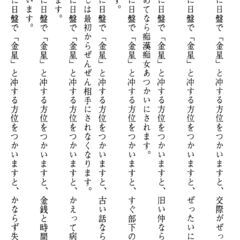 に日盤で「金星」と冲する方位をつかいますと、交際がぜっ
に日盤で「金星」と冲する方位をつかいますと、ぜったいに
に日盤で「金星」と冲する方位をつかいますと、旧い仲なら
めてなら痴漢痴女あつかいにされます。
に日盤で「金星」と冲する方位をつかいますと、すぐ部下の
す。
に日盤で「金星」と冲する方位をつかいますと、古い話なら
しは最初からぜんぜん相手にされなくなります。
に日盤で「金星」と冲する方位をつかいますと、かえって病
す。
に日盤で「金星」と冲する方位をつかいますと、金銭と時間
います。
に日盤で「金星」と冲する方位をつかいますと、かならず失